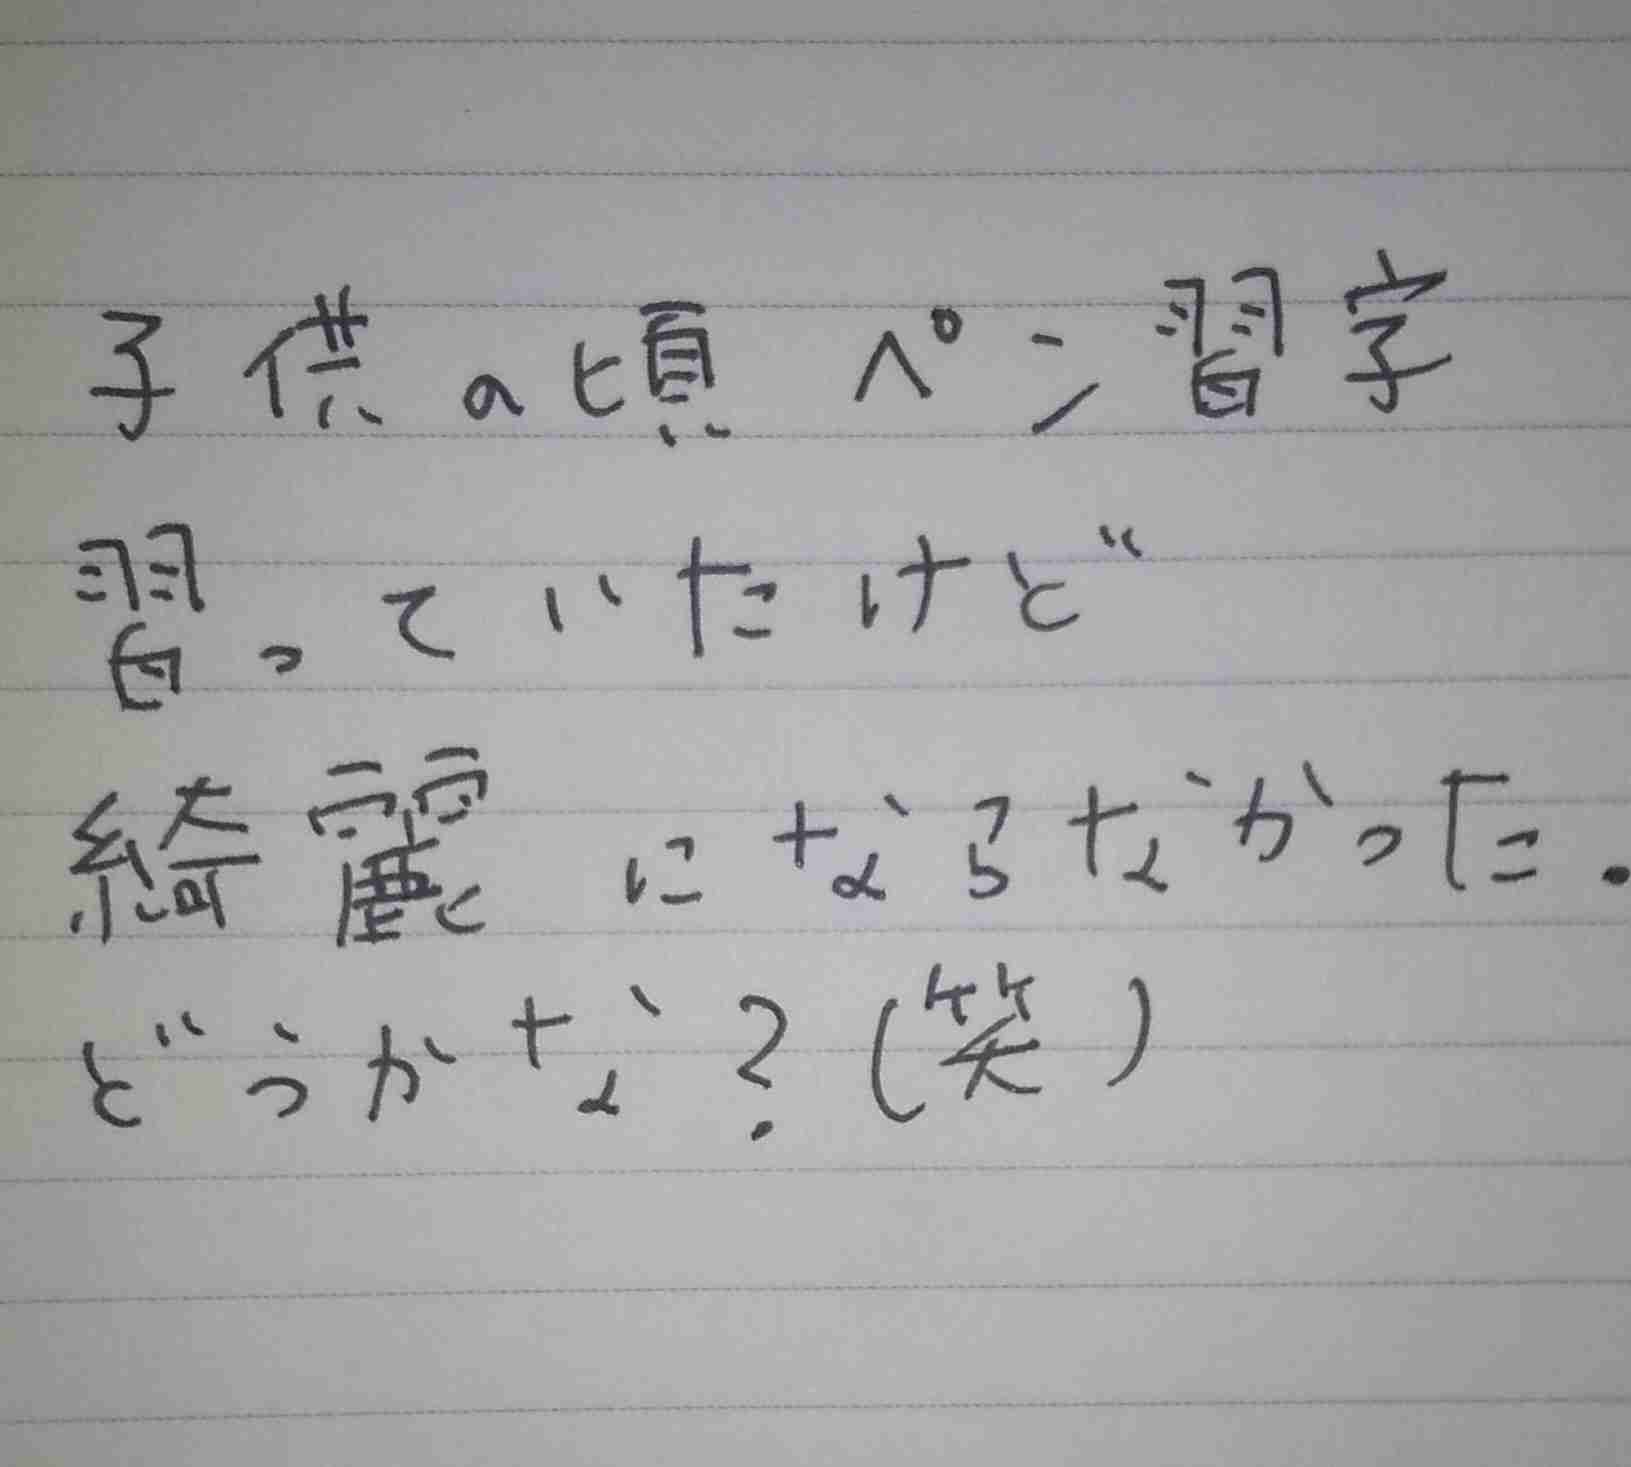 子供の頃ペン習字
習っていたけど
綺麗にならなかった.
どうかな?(笑)